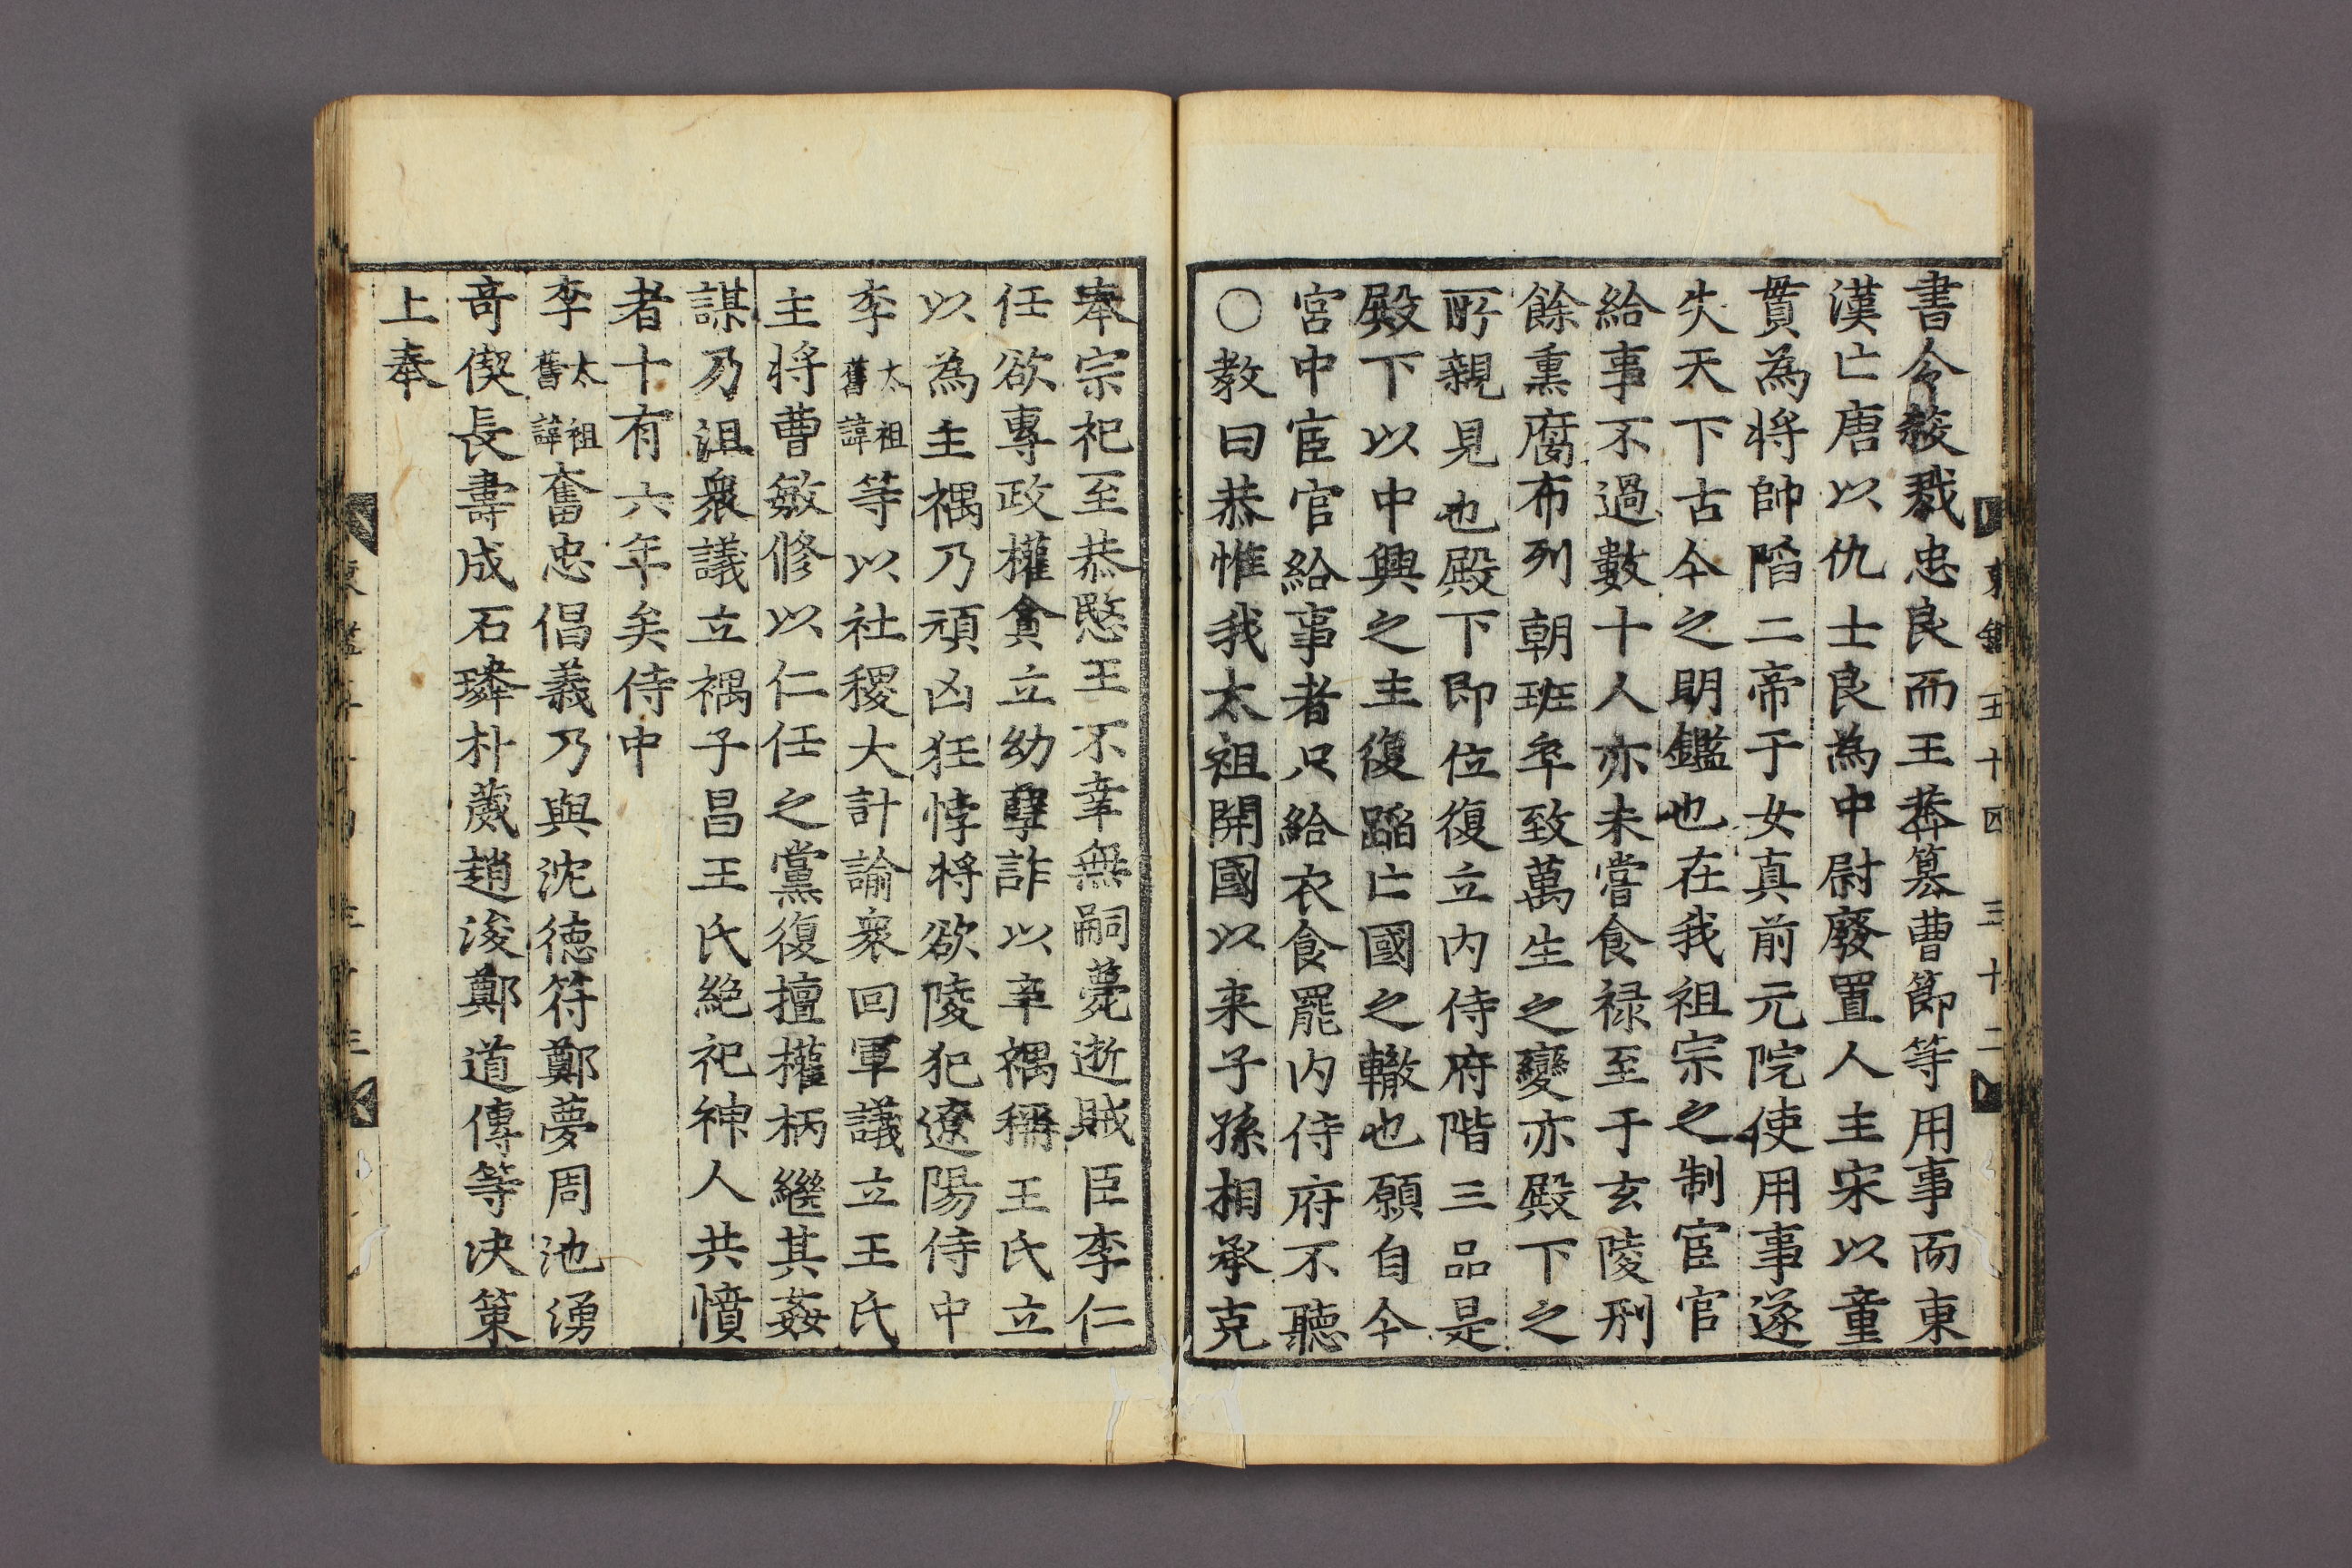 東鑑五十四 三十二
書令殺戮忠良而王莽簒曹節等用事而東
漢亡唐以仇士良為中尉廢置人主宋以童
貫為將帥陷二帝于女真前元院使用事遂
失天下古今之明鑑也在我祖宗之制宦官
給事不過數十人亦未嘗食祿至于玄陵刑
餘熏腐布列朝班卒致萬生之變亦殿下之
所親見也殿下即位復立内侍府階三品是
殿下以中興之主復蹈亡國之轍也願自今
宮中宦官給事者只給衣食罷内侍府不聽
○教曰恭惟我太祖開國以来子孫相承克
奉宗祀至恭愍王不幸無嗣薨逝賊臣李仁
任欲專政權貪立幼孽詐以辛禑稱王氏立
以為主禑乃頑凶狂悖将欲陵犯遼陽侍中
李太祖舊諱等以社稷大計諭衆回軍議立王氏
主將曹敏修以仁任之黨復擅權柄繼其姦
謀乃沮衆議立禑子昌王氏絶祀神人共憤
者十有六年矣侍中
李太祖舊諱奮忠倡義乃與沈德符鄭夢周池湧
奇偰長壽成石璘朴葳趙浚鄭道傳等决策
上奉